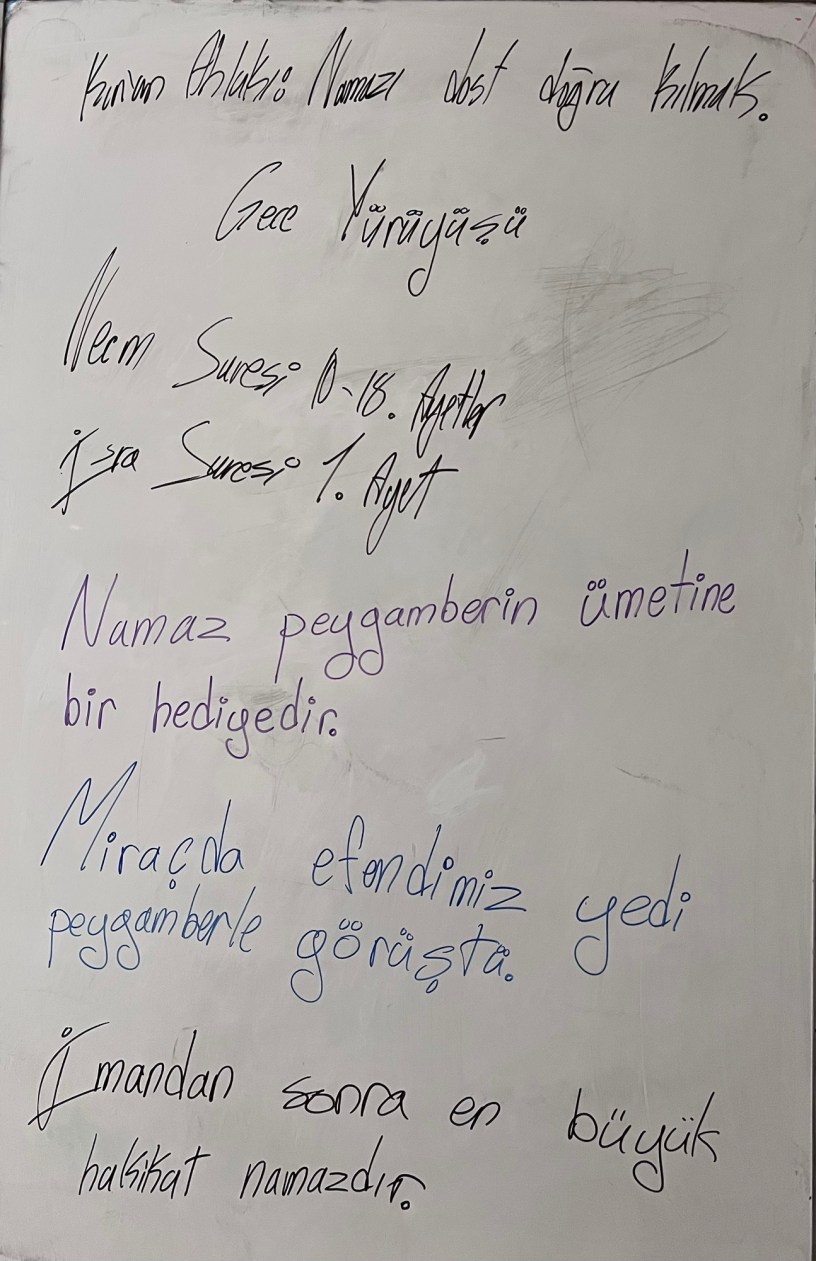 Kur'an Ahlakı: Namazı dost doğru kılmak.
Gece Yürüyüşü
Necm Suresi 10-18. Ayetler
İsra Suresi 1. Ayet
Namaz peygamberin ümetine
bir hediyedir.
Miraçda efendimiz yedi
peygamberle görüştü.
İmandan sonra en büyük
hakikat namazdır.